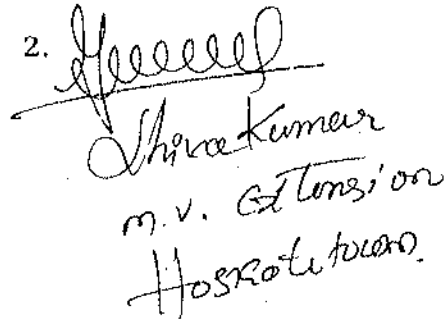 2.
Shiva Kumar
m.v. Extension
Hoskote town.